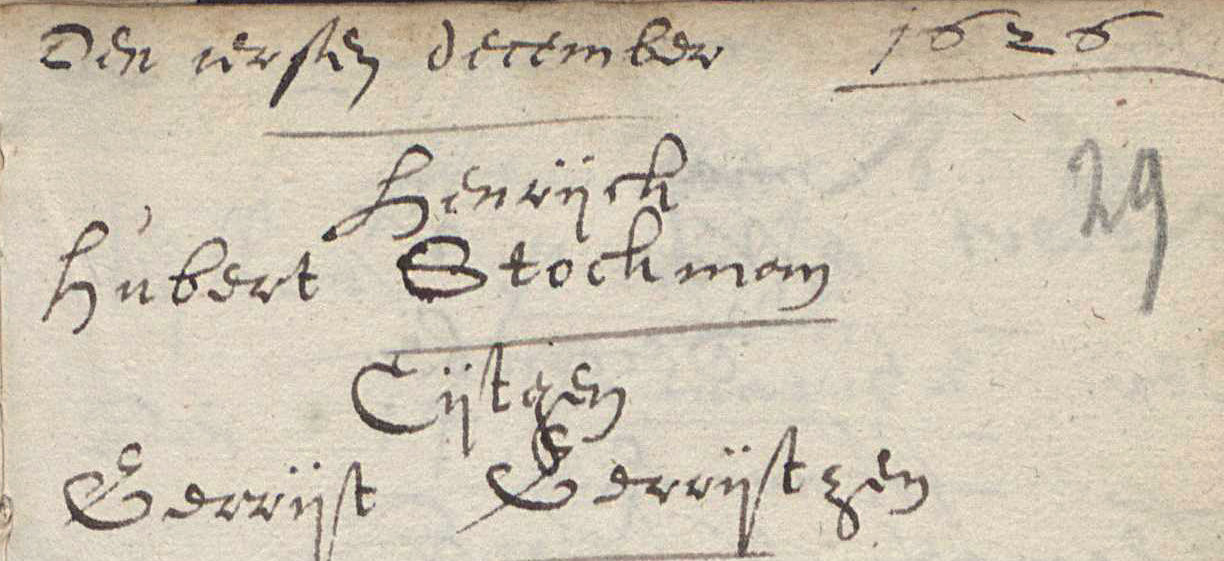 Den iersten december 1626
Henrijck
29
Hubert Stockman
Cijtgen
Gerrijst Gerrijstzen